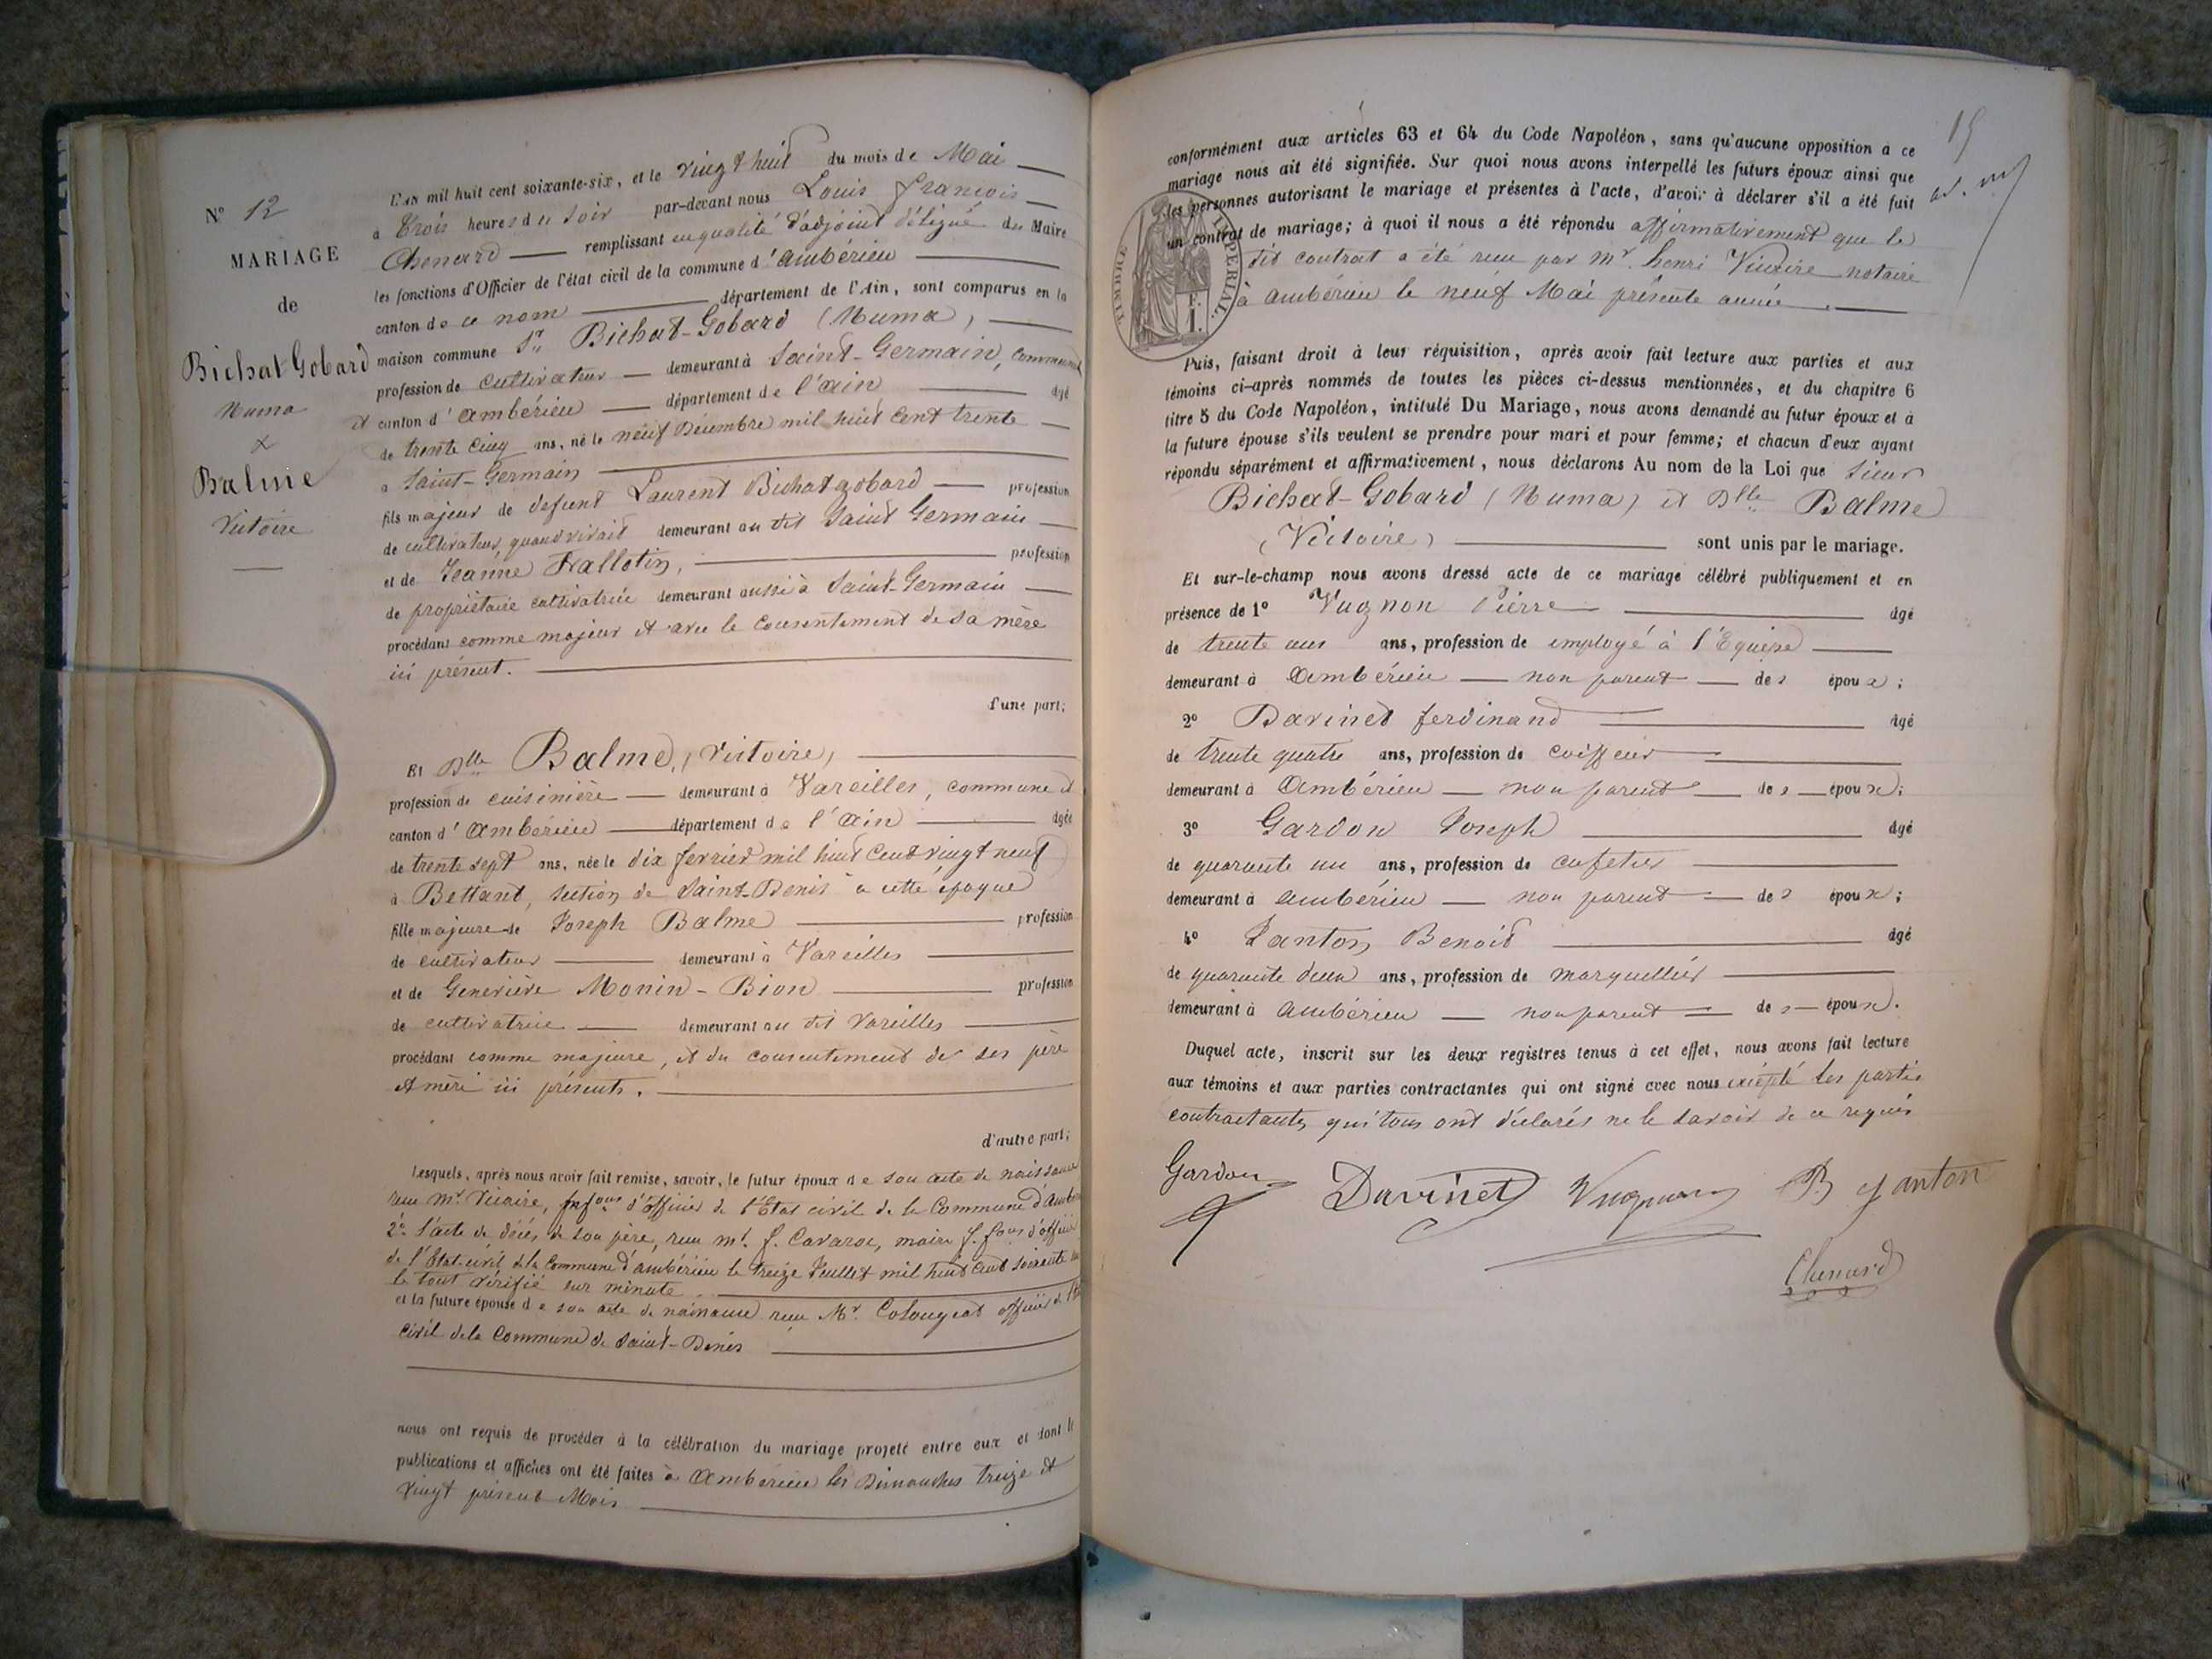 N° 12
MARIAGE
de
Bichat Gobard
Numa
x
Balme
Victoire
L'an mil huit cent soixante-six, et le vingt huit du mois de Mai
à Trois heures du soir par-devant nous Louis François
Chenard remplissant en qualité d'adjoint délégué du Maire
les fonctions d'Officier de l'état civil de la commune d'Ambérieu
canton de ce nom département de l'Ain, sont comparus en la
maison commune Sr Bichat-Gobard (Numa)
profession de cultivateur demeurant à Saint-Germain, commune
et canton d'ambérieu département de l'ain âgé
de trente cinq ans, né le neuf Décembre mil huit Cent trente
à Saint-Germain
fils majeur de defunt Laurent Bichatgobard profession
de cultivateur, quand vivait demeurant au dit Saint Germain
et de Jeanne profession
de propriétaire cultivatrice demeurant aussi à Saint-Germain
procédant comme majeur et avec le Consentement de sa mère
ici présent.
d'une part;
Et Dlle Balme, (Victoire)
profession de cuisinière demeurant à Vareilles, commune et
canton d'Ambérieu département de l'Ain âgée
de trente sept ans, née le dix ferrier mil huit Cent vingt neuf
à Bettant, section de Saint-Denis à cette époque
fille majeure de Joseph Balme profession
de cultivateur demeurant à Vareilles
et de Geneviève Monin-Bion profession
de cultivatrice demeurant au dit Vareilles
procédant comme majeure, et du consentement de ses père
et mère ici présents.
d'autre part;
Lesquels, après nous avoir fait remise, savoir, le futur époux de son acte de naissance
reçu mr. Vicaire, d'Officier de l'Etat civil de la Commune d'Ambé
2° l'acte de décès de son père, reçu mr. f. Cavaroc, maire f. fons d'officier
de l'Etat-civil de la Commune d'ambérieu le treize Juillet mil huit cent soixante
le tout vérifié sur minute
et la future épouse de son acte de naissance reçu Mr. officier de l'Etat
civil de la Commune de Saint-Denis
nous ont requis de procéder à la célébration du mariage projeté entre eux et dont les
publications et affiches ont été faites à Ambérieu les Dimanches treize et
vingt présent Mois
15
conformément aux articles 63 et 64 du Code Napoléon, sans qu'aucune opposition à ce
mariage nous ait été signifiée. Sur quoi nous avons interpellé les futurs époux ainsi que
les personnes autorisant le mariage et présentes à l'acte, d'avoir à déclarer s'il a été fait
un contrat de mariage; à quoi il nous a été répondu affirmativement que le
dit contrat a été reçu par Mr. henri notaire
à ambérieu le neuf Mai présente année.
TIMBRE IMPERIAL
1 F.
Puis, faisant droit à leur réquisition, après avoir fait lecture aux parties et aux
témoins ci-après nommés de toutes les pièces ci-dessus mentionnées, et du chapitre 6
titre 5 du Code Napoléon, intitulé Du Mariage, nous avons demandé au futur époux et à
la future épouse s'ils veulent se prendre pour mari et pour femme; et chacun d'eux ayant
répondu séparément et affirmativement, nous déclarons Au nom de la Loi que Sieur
Bichat-Gobard (Numa) et Dlle Balme
(Victoire) sont unis par le mariage.
Et sur-le-champ nous avons dressé acte de ce mariage célébré publiquement et en
présence de 1° Vugnon Pierre âgé
de trente ans, profession de employé à l'Equipe
demeurant à Ambérieu non parent des époux;
2° Davinet ferdinand âgé
de trente quatre ans, profession de coiffeur
demeurant à Ambérieu non parent des époux;
3° Gardon Joseph âgé
de quarante un ans, profession de cafetier
demeurant à ambérieu non parent des époux;
4° Janton Benoit âgé
de quarante deux ans, profession de marguellier
demeurant à Ambérieu non parent des époux.
Duquel acte, inscrit sur les deux registres tenus à cet effet, nous avons fait lecture
aux témoins et aux parties contractantes qui ont signé avec nous excepté les parties
contractantes qui tous ont déclarés ne le savoir de ce requis
Gardon Davinet Vugnon B janton
Chenard